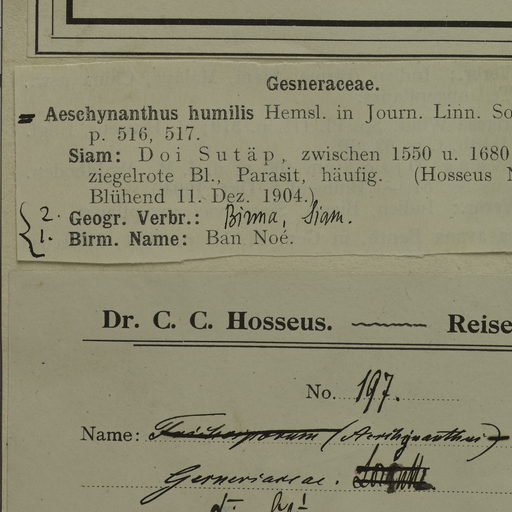 Gesneraceae.
Aeschynanthus humilis Hemsl. in Journ. Linn. So
p. 516, 517.
Siam: Doi Sutäp, zwischen 1550 u. 1680
ziegelrote Bl., Parasit, häufig. (Hosseus N
Blühend 11. Dez. 1904.)
2. Geogr. Verbr.: Birma, Siam.
1. Birm. Name: Ban Noé.
Dr. C. C. Hosseus. Reise
No. 197.
Name: Trichosporum (Aeschynanthus)
Gesneriaceae.